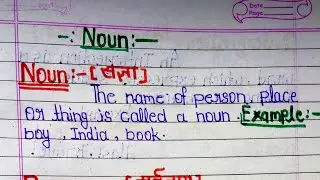 Date
Page
-: Noun:-
Noun:-[संज्ञा]
The name of person, place
or thing is called a noun. Example:-
boy, India, book.